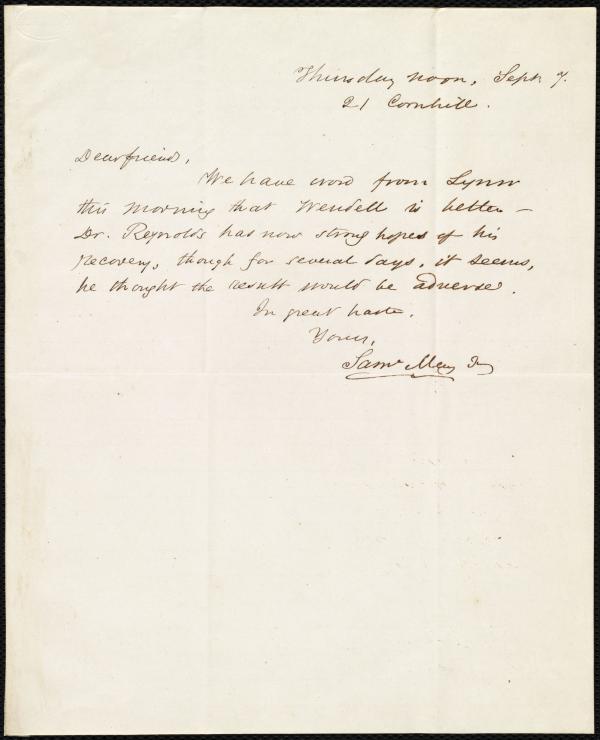 Thursday noon, Sept. 7.
21 Cornhill.
Dear friend,
We have word from Lynn
this morning that Wendell is better —
Dr. Reynolds has now strong hopes of his
recovery, though for several days, it seems,
he thought the result would be adverse.
In great haste.
Yours,
Saml. May Jr.